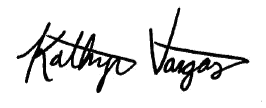 Kathryn Vargas